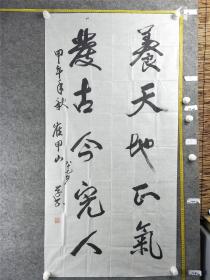 養天地正氣
古今完人
甲午年秋 崔甲山